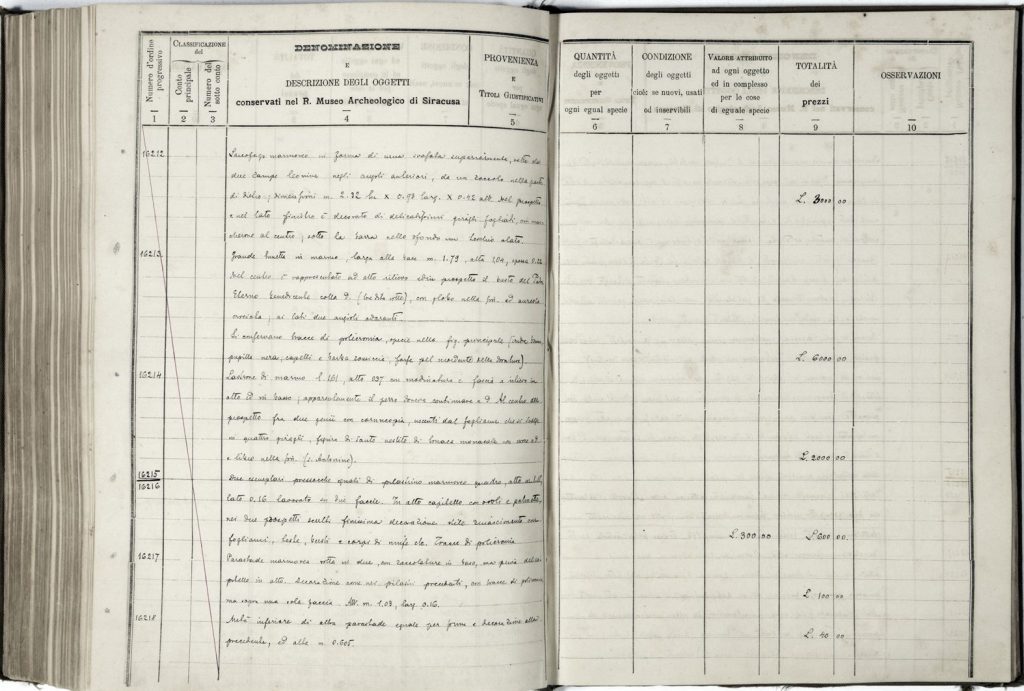 Numero d'ordine progressivo
CLASSIFICAZIONE del
Conto principale
Numero del sotto conto
DENOMINAZIONE
E
DESCRIZIONE DEGLI OGGETTI
conservati nel R. Museo Archeologico di Siracusa
PROVENIENZA
E
TITOLI GIUSTIFICATIVI
1
2
3
4
5
QUANTITÀ
degli oggetti
per
ogni egual specie
CONDIZIONE
degli oggetti
cioè: se nuovi, usati
od inservibili
VALORE ATTRIBUITO
ad ogni oggetto
ed in complesso
per le cose
di eguale specie
TOTALITÀ
dei
prezzi
OSSERVAZIONI
6
7
8
9
10
16212
Sarcofago marmoreo in forma di urna
due zampe leonine negli angoli anteriori, da un zoccolo nella parte
di dietro; dimensioni m. 2.32 x 0.93 larg. x 0.92 alt. Nel prospetto
e nel lato sinistro è decorato di delicatissimi girághi fogliati, con
al centro; sotto la barra nello sfondo un alato.
L. 3000 00
16213
Grande lunetta in marmo, larga alla base m. 1.79, alta 1.04,
Nel centro è rappresentato ad alto rilievo di prospetto il busto del Padre
Eterno benedicente colla D. (tre dita rotte), con globo nella sin. ed aureola
crociata; ai lati due angioli adoranti.
Si conservano tracce di policromia, specie nella fig. principale
pupille nere, capelli e barba
L. 6000 00
16214
Lastrone di marmo l. 161, alto 037 con modinatura e faccia a rilievo in
alto ed in basso; apparentemente il pezzo doveva continuare a D. Al centro
prospetto fra due genii con cornucopia, uscenti dal fogliame
in quattro girághi, figura di santo vestito di tonaca monacale con croce ed
e libro nella sin. (S. Antonino).
L. 2000 00
16215
16216
Due esemplari pressochè eguali di pilastrino marmoreo quadro,
lato 0.16 lavorato in due faccie. In alto capitello con ovoli e palmette,
nei due prospetti scolti finissima decorazione stile rinascimento con
fogliami, teste, busti e corpi di ninfe etc. Tracce di policromia
L. 300.00
L. 600 00
16217
Parastade marmorea rotta in due, con zoccolatura in basso, ma priva del
capitello in alto. Decorazione come nei pilastri precedenti, con tracce di policromia,
ma sopra una sola faccia. Alt. m. 1.03, larg. 0.16.
L. 100 00
16218
Metà inferiore di altra parastade eguale per forma e decorazione alla
precedente, ed alta m. 0.605.
L. 40 00